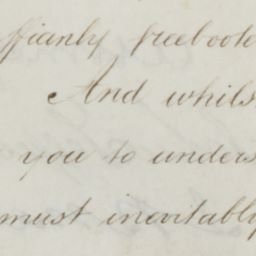 ffianly freeboote
And whils
you to unders
must inevitably